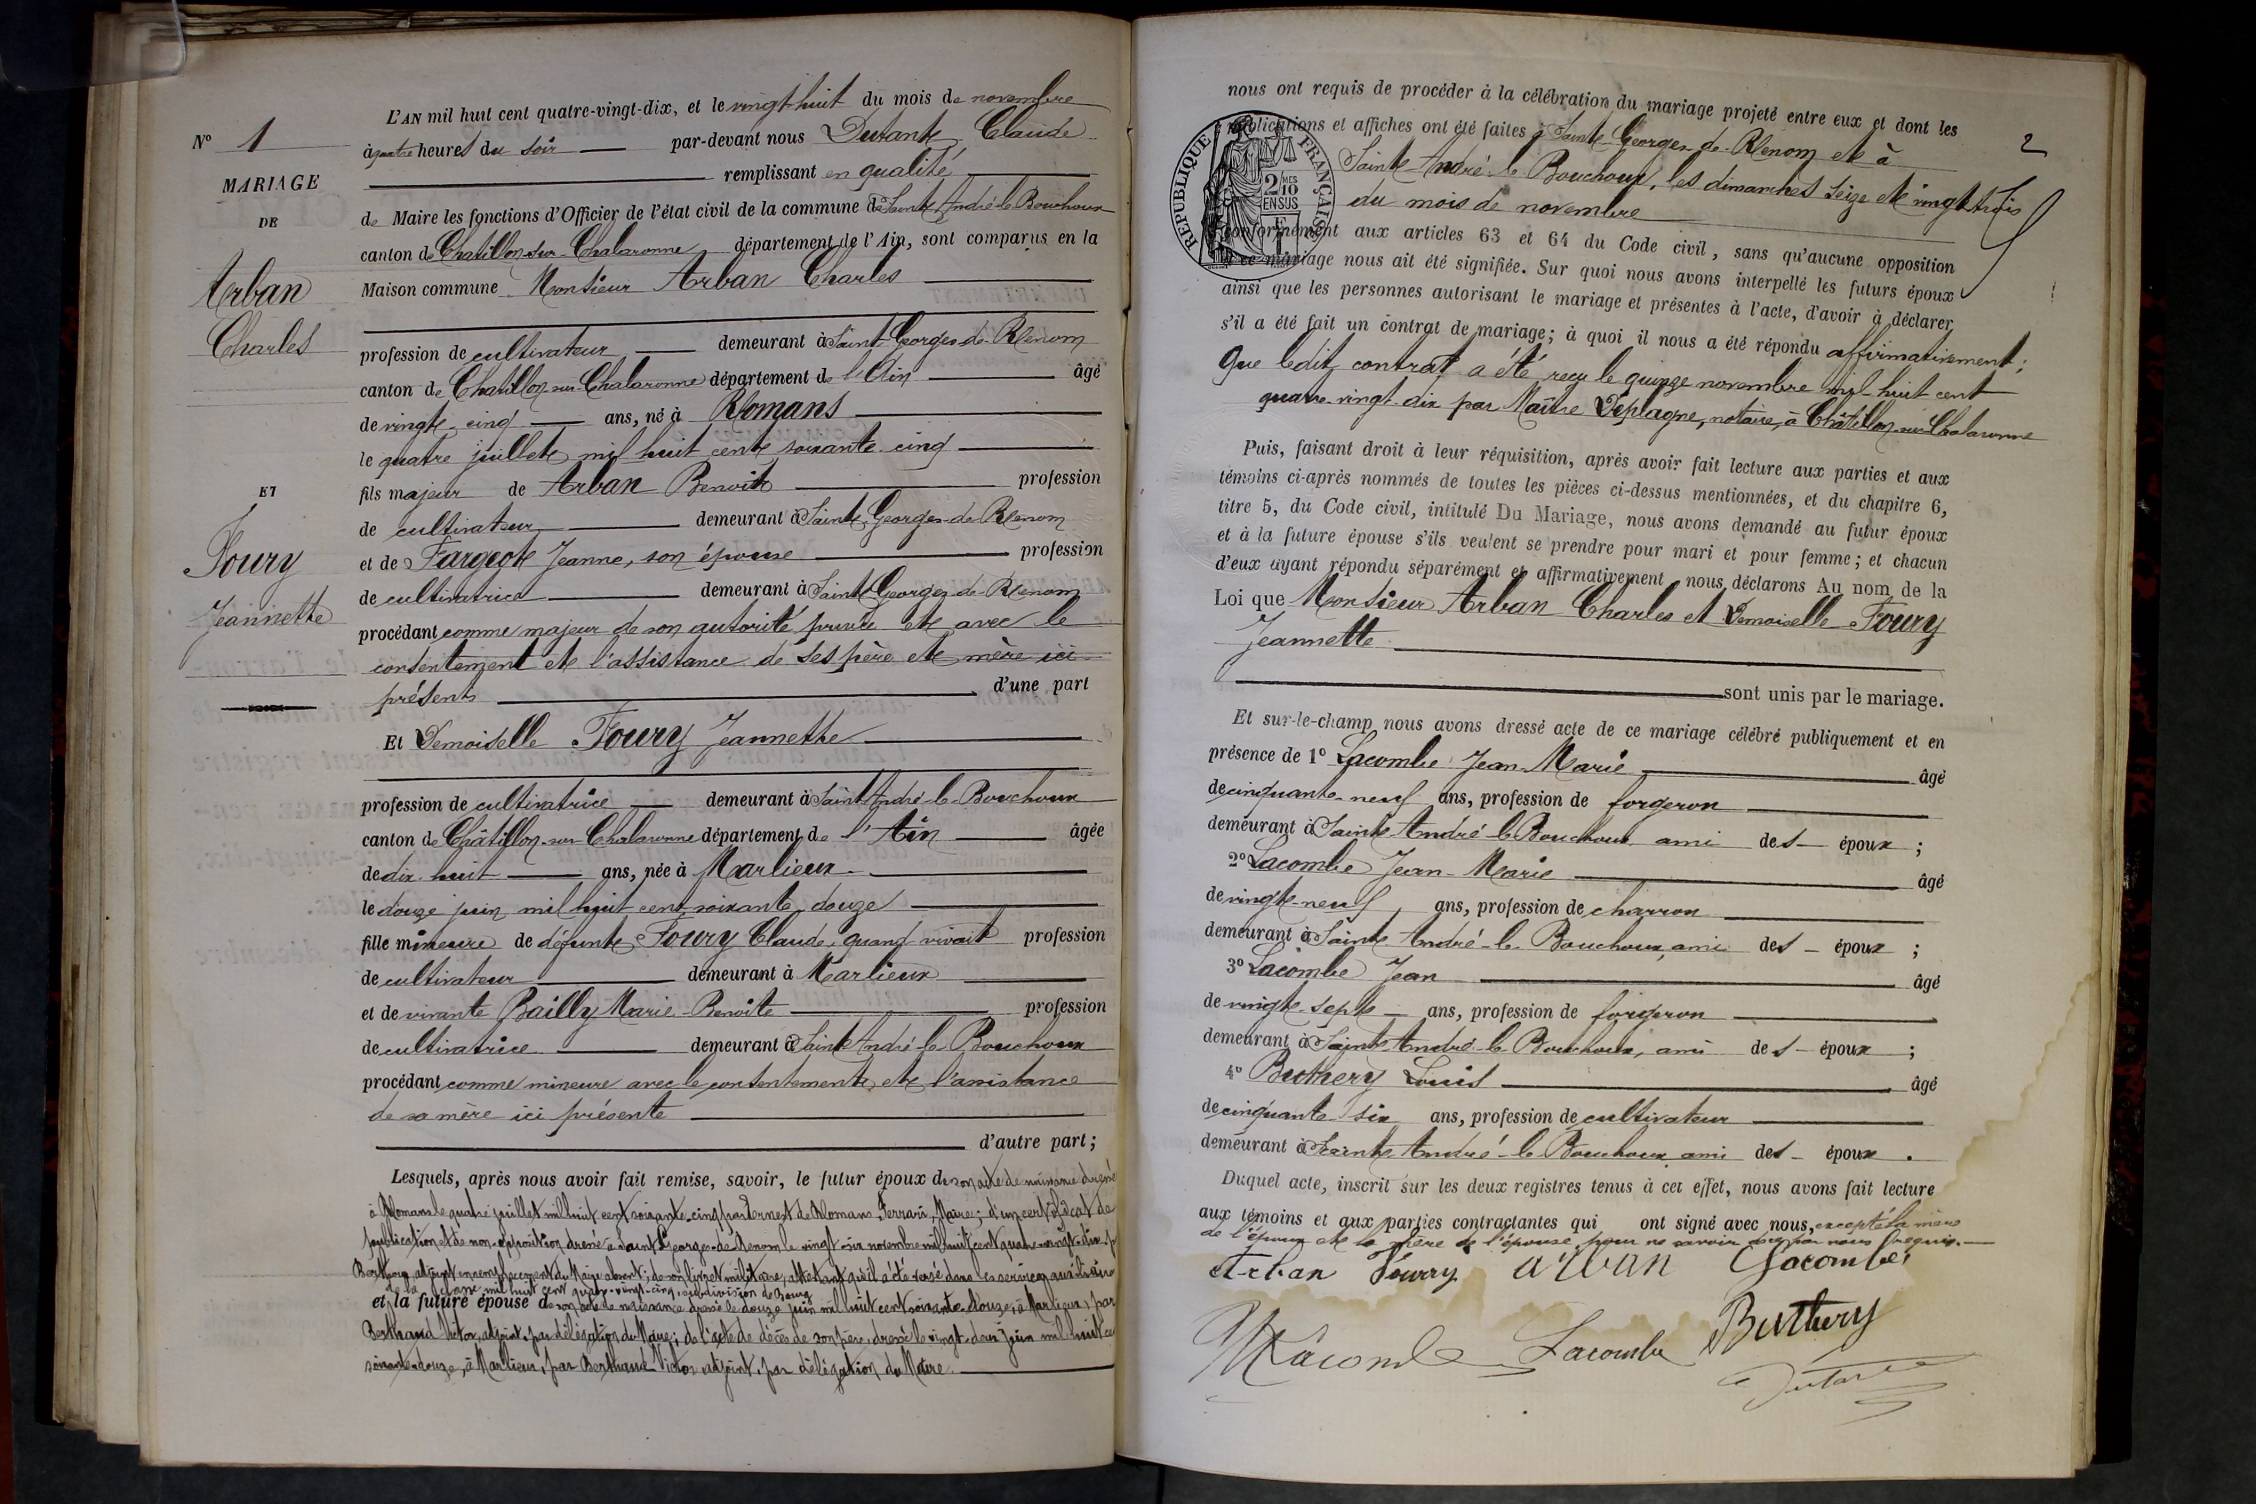 N° 1
MARIAGE
DE
Arban
Charles
ET
Foury
Jeannette
L'AN mil huit cent quatre-vingt-dix, et le vingt-huit du mois de novembre
à quatre heures du soir par-devant nous Dutante Claude
remplissant en qualité
de Maire les fonctions d'Officier de l'état civil de la commune de Saint-André-le-Bouchoux
canton de Chatillon-sur-Chalaronne département de l'Ain, sont comparus en la
Maison commune Monsieur Arban Charles
profession de cultivateur demeurant à Saint-Georges-de-Renom
canton de Chatillon-sur-Chalaronne département de l'Ain âgé
de vingt-cinq ans, né à Romans
le quatre juillet mil huit cent soixante-cinq
fils majeur de Arban Benoit profession
de cultivateur demeurant à Saint-Georges-de-Renom
et de Fargeot Jeanne, son épouse profession
de cultivatrice demeurant à Saint-Georges-de-Renom
procédant comme majeur de son autorité privée et avec le
consentement et l'assistance de ses père et mère ici
présents d'une part
Et Demoiselle Foury Jeannette
profession de cultivatrice demeurant à Saint-André-le-Bouchoux
canton de Châtillon-sur-Chalaronne département de l'Ain âgée
de dix-huit ans, née à Marlieux
le douze juin mil huit cent soixante-douze
fille mineure de défunt Foury Claude, quand vivait profession
de cultivateur demeurant à Marlieux
et de vivante Bailly Marie-Benoite profession
de cultivatrice demeurant à Saint-André-le-Bouchoux
procédant comme mineure avec le consentement et l'assistance
de sa mère ici présente
d'autre part;
Lesquels, après nous avoir fait remise, savoir, le futur époux de son acte de naissance dressé
à Romans le quatre juillet mil huit cent soixante-cinq par Ternest de Romans-Ferrari, Maire; d'un certificat de
publication et de non-opposition dressé à Saint-Georges-de-Renom le vingt-six novembre mil huit cent quatre-vingt-dix, p
adjoint en remplacement du Maire absent; de son livret militaire, attestant qu'il a été versé dans les services auxiliaires
de la classe mil huit cent quatre-vingt-cinq, subdivision de Bourg
et la future épouse de son acte de naissance dressé le douze juin mil huit cent soixante-douze, à Marlieux, par
Berthaud Victor, adjoint, par délégation du Maire; de l'acte de décès de son père, dressé le vingt-deux juin mil huit ce
soixante-douze, à Marlieux, par Berthaud Victor adjoint, par délégation du Maire.
2
nous ont requis de procéder à la célébration du mariage projeté entre eux et dont les
publications et affiches ont été faites à Saint-Georges-de-Renom et à
Saint-André-le-Bouchoux, les dimanches seize et vingt-trois
du mois de novembre
RÉPUBLIQUE FRANÇAISE
2 MES
10
EN SUS
1 F
conformément aux articles 63 et 64 du Code civil, sans qu'aucune opposition
à ce mariage nous ait été signifiée. Sur quoi nous avons interpellé les futurs époux
ainsi que les personnes autorisant le mariage et présentes à l'acte, d'avoir à déclarer
s'il a été fait un contrat de mariage; à quoi il nous a été répondu affirmativement;
Que ledit contrat a été reçu le quinze novembre mil-huit cent
quatre-vingt-dix par Maître Déplagne, notaire, à Châtillon-sur-Chalaronne
Puis, faisant droit à leur réquisition, après avoir fait lecture aux parties et aux
témoins ci-après nommés de toutes les pièces ci-dessus mentionnées, et du chapitre 6,
titre 5, du Code civil, intitulé Du Mariage, nous avons demandé au futur époux
et à la future épouse s'ils veulent se prendre pour mari et pour femme; et chacun
d'eux ayant répondu séparément et affirmativement nous déclarons Au nom de la
Loi que Monsieur Arban Charles et Demoiselle Foury
Jeannette
sont unis par le mariage.
Et sur-le-champ nous avons dressé acte de ce mariage célébré publiquement et en
présence de 1° Lacombe Jean-Marie âgé
de cinquante-neuf ans, profession de forgeron
demeurant à Saint-André-le-Bouchoux ami des époux ;
2° Lacombe Jean-Marie âgé
de vingt-neuf ans, profession de charron
demeurant à Saint-André-le-Bouchoux, ami des époux ;
3° Lacombe Jean âgé
de vingt-sept ans, profession de forgeron
demeurant à Saint-André-le-Bouchoux, ami des époux ;
4° Buthery Louis âgé
de cinquante-six ans, profession de cultivateur
demeurant à Saint-André-le-Bouchoux ami des époux .
Duquel acte, inscrit sur les deux registres tenus à cet effet, nous avons fait lecture
aux témoins et aux parties contractantes qui ont signé avec nous, excepté la mère
de l'époux et la mère de l'épouse, pour ne savoir de ce par nous requis.
Arban Foury arban Lacombe
Lacombe Lacombe Buthery